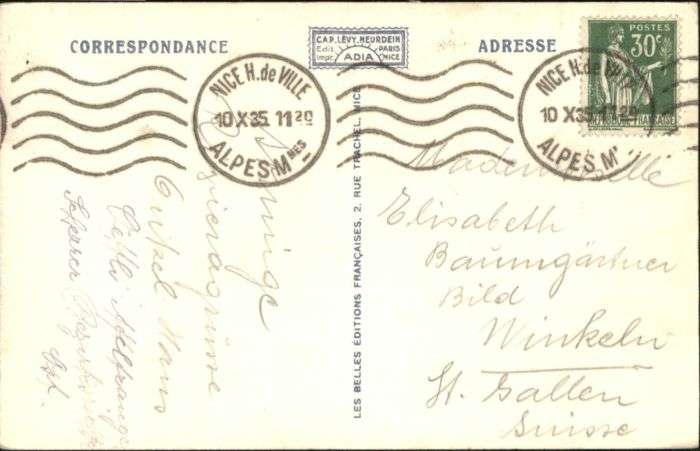 CORRESPONDANCE
CAP. LÉVY. NEURDEIN
Edit. PARIS
Impr. ADIA NICE
ADRESSE
POSTES
30c
FRANÇAISE
NICE H. de VILLE
10 X 35 11 20
ALPES Mmes
NICE H. de VILLE
10 X 35 11 20
ALPES M
LES BELLES ÉDITIONS FRANÇAISES, 2, RUE TRACHEL, NICE
Mademoiselle
Elisabeth
Baumgärtner
Bild
Winkeln
St. Gallen
Suisse
Onkel Hans